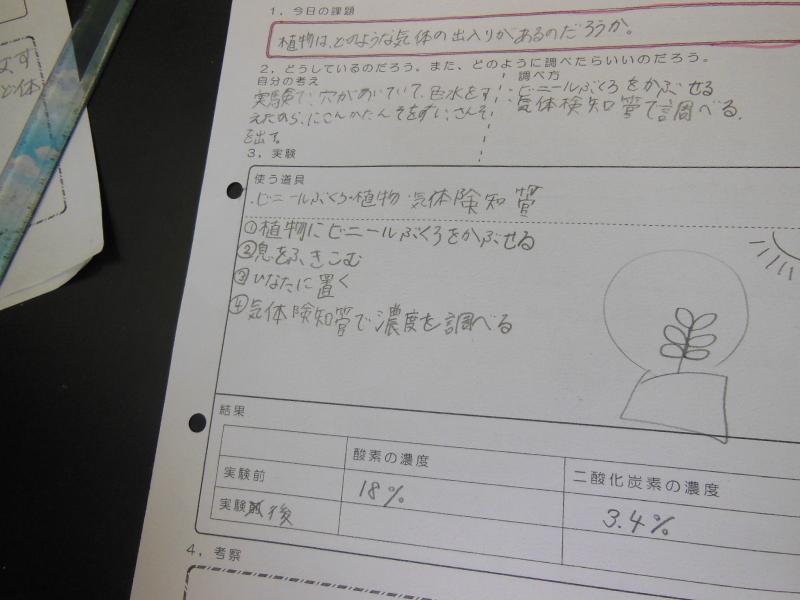 ます
と体
1. 今日の課題
植物は、どのような気体の出入りがあるのだろうか。
2. どうしているのだろう。また、どのように調べたらいいのだろう。
自分の考え
実験で、穴があいていて、色水をす
えたのら、にさんかたんそをすい、さんそ
を出す。
調べ方
・ビニールぶくろをかぶせる
・気体検知管で調べる。
3. 実験
使う道具
・ビニールぶくろ・植物・気体険知管
①植物にビニールぶくろをかぶせる
②息をふきこむ
③ひなたに置く
④気体険知管で濃度を調べる
結果
酸素の濃度
二酸化炭素の濃度
実験前
18%
3.4%
実験後
4. 考察